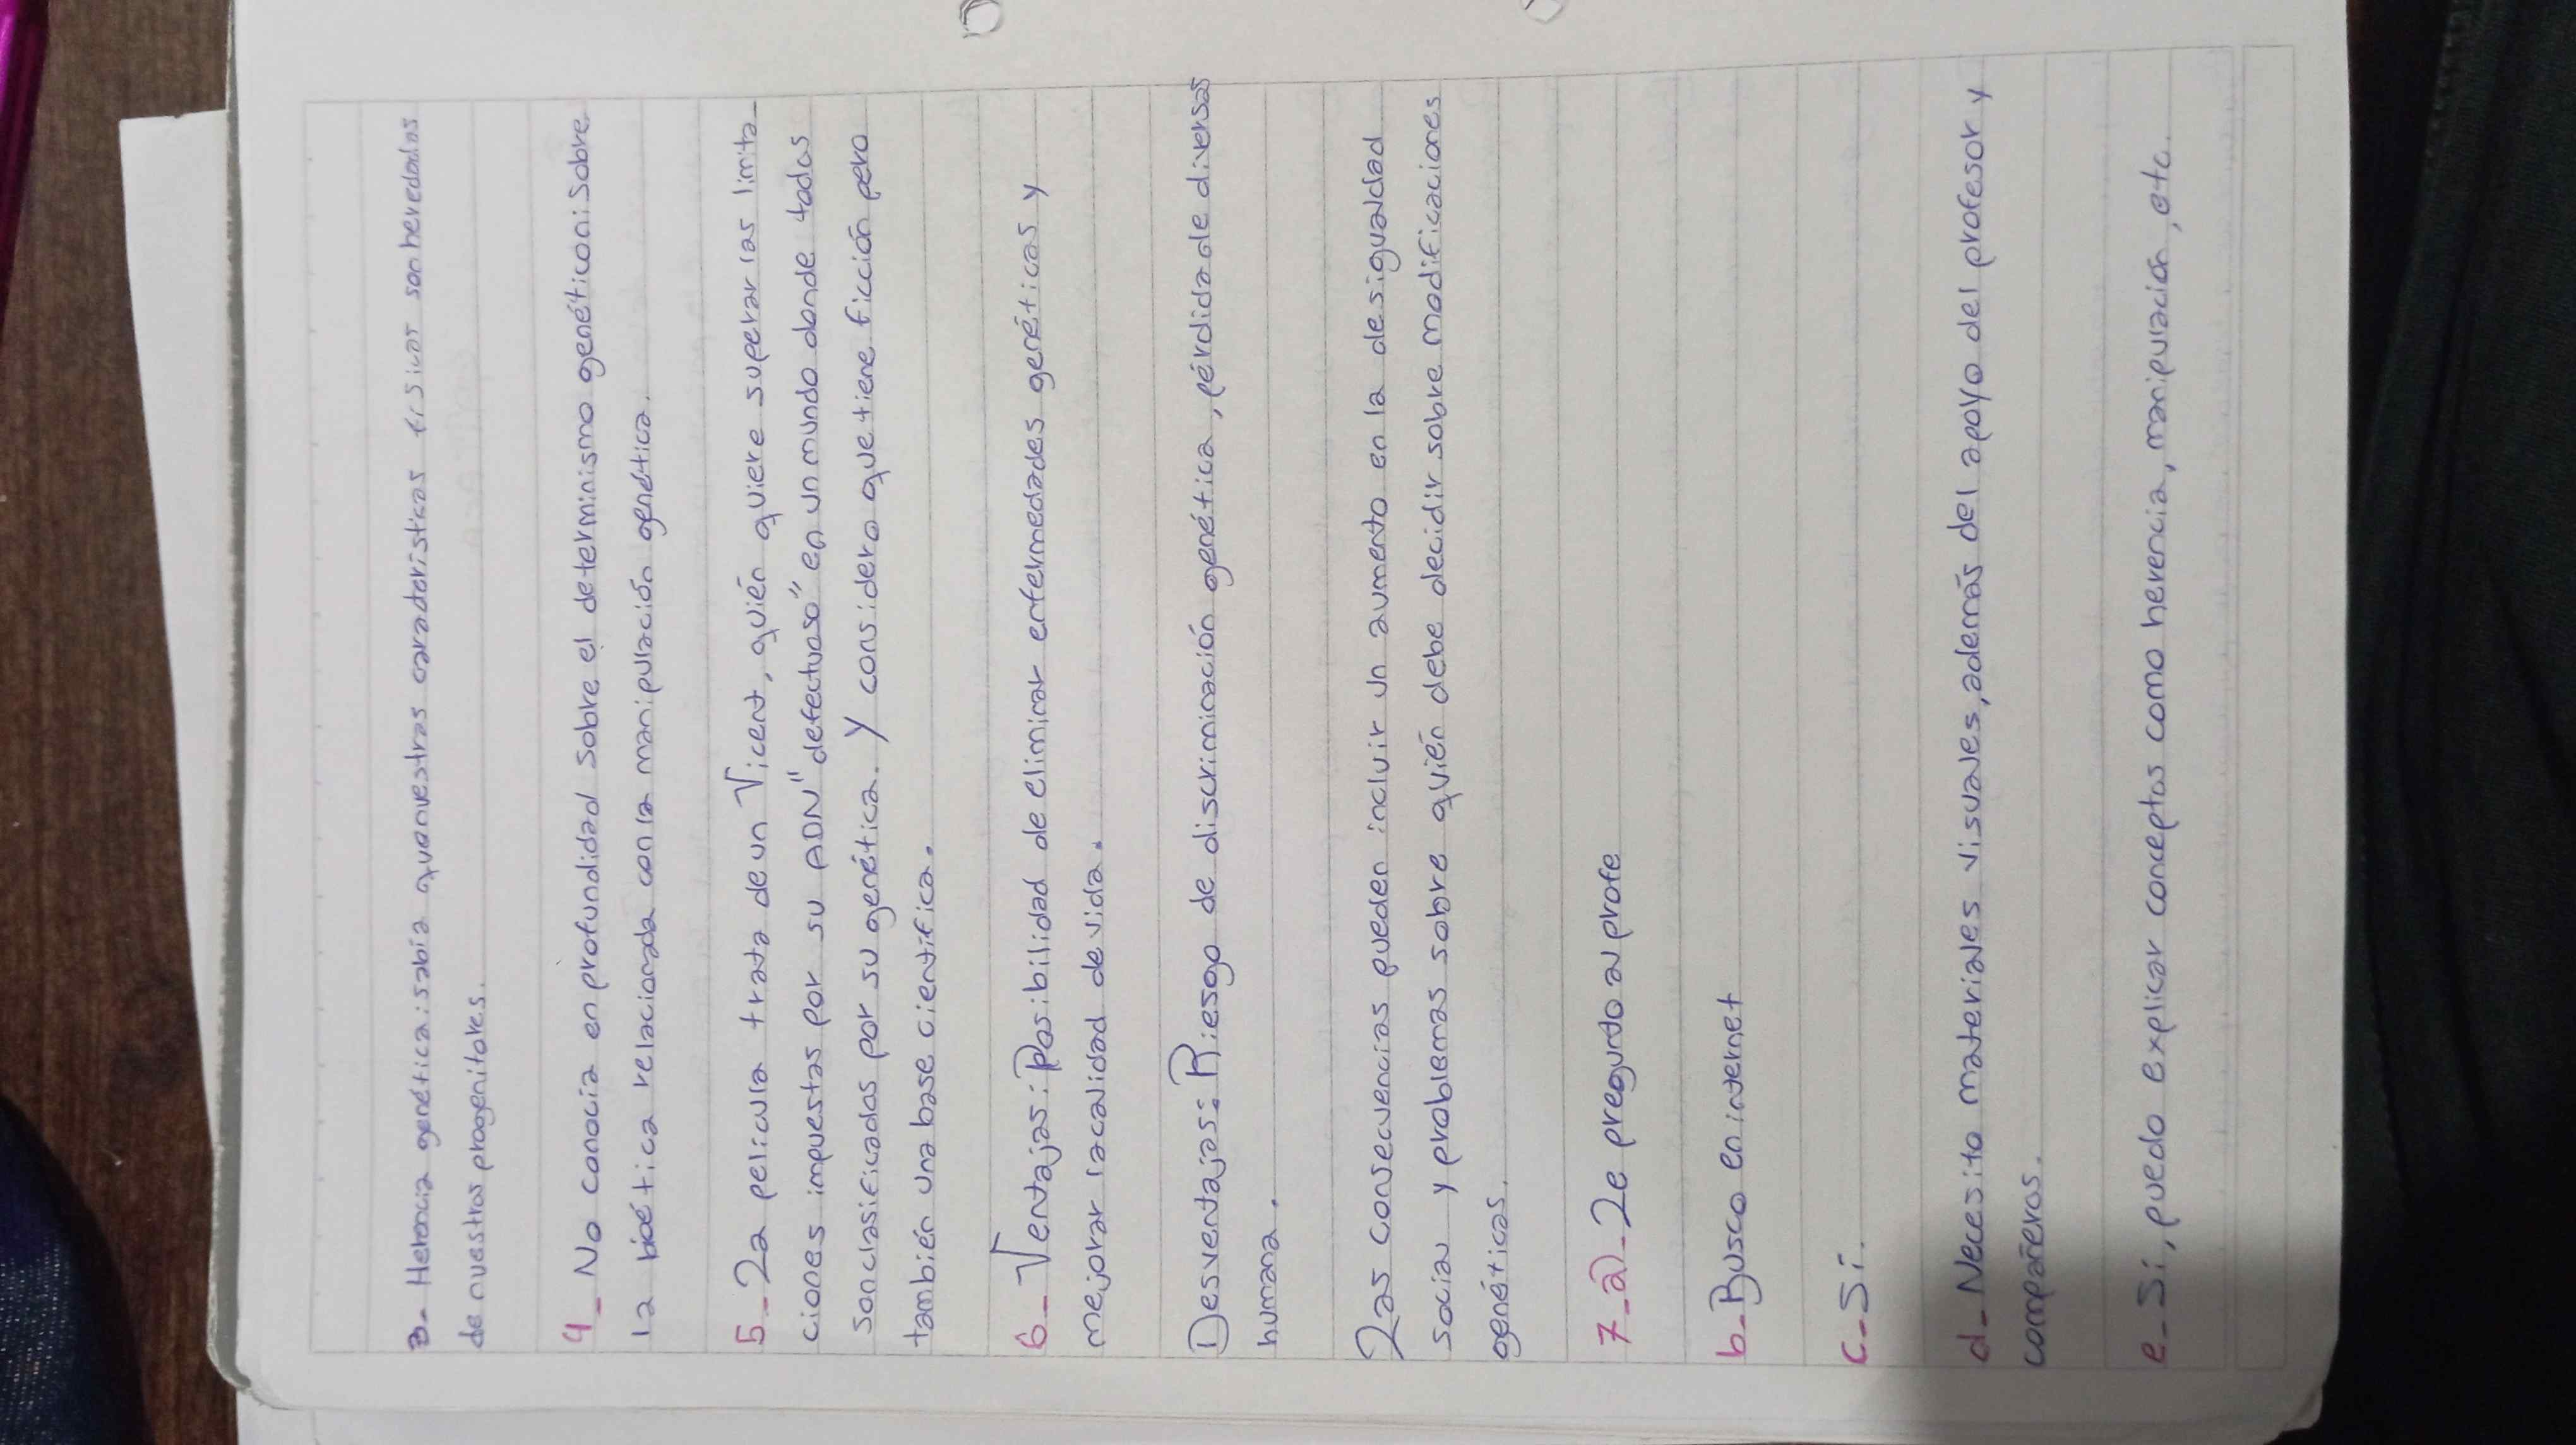 3- Herencia genética: sabía que nuestras caracteristicas físicas son heredadas
de nuestros progenitores.
4- No conocía en profundidad sobre el determinismo genético ni sobre
la bioética relacionada con la manipulación genética.
5- La pelicula trata de un Vicent, quién quiere superar las limita
ciones impuestas por su ADN "defectuoso" en un mundo donde todos
son clasificados por su genética. Y considero que tiene ficción pero
también una base cientifica.
6- Ventajas: Posibilidad de eliminar enfermedades genéticas y
mejorar la calidad de vida.
Desventajas: Riesgo de discriminación genética, pérdida de diversas
humana.
Las consecuencias pueden incluir un aumento en la desigualdad
social y problemas sobre quién debe decidir sobre modificaciones
genéticas.
7- a- Le pregunto al profe
b- Busco en internet
c- Si.
d- Necesito materiales visuales, además del apoyo del profesor y
compañeros.
e- Si, puedo explicar conceptos como herencia, manipulación, etc.